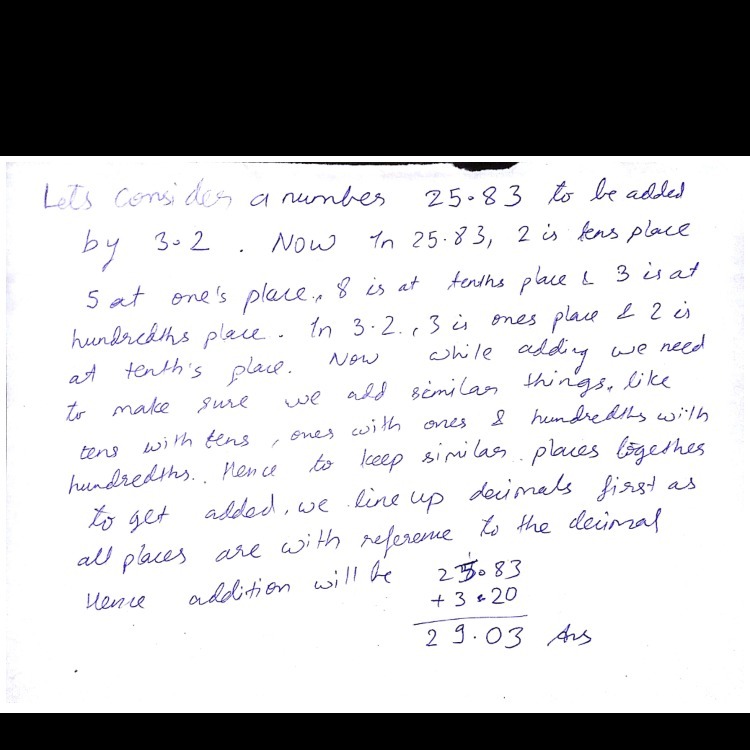 Lets consider a number 25.83 to be added
by 3.2 . Now In 25.83, 2 is tens place
5 at one's place, 8 is at tenths place & 3 is at
hundredths place. In 3.2, 3 is ones place & 2 is
at tenth's place. Now while adding we need
to make sure we add similar things, like
tens with tens, ones with ones & hundredths with
hundredths. Hence to keep similar places together
to get added, we line up decimals first as
all places are with reference to the decimal
Hence addition will be 25.83
+ 3.20
29.03 Ans